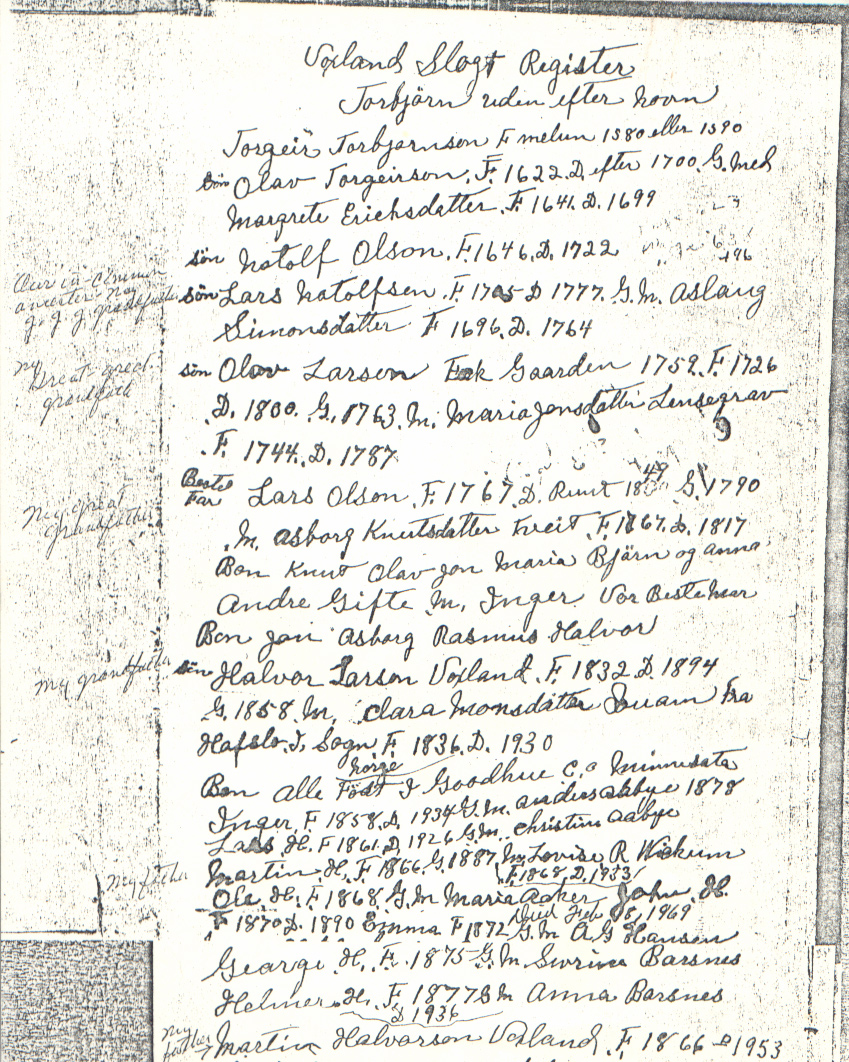 Voxland Slogt Register
Torbjörn uden efter navn
Torgeir Torbjornson F melun 1580 eller 1590
Sön Olav Torgeirson. F. 1622. D. efter 1700. G. Med
Margrete Erichsdatter. F. 1641. D. 1699
sön Natolf Olson. F. 1646. D. 1722
1696
Our in common
ancester - my
g. g. g. grandfather
sön Lars Natolfsen. F. 1705 D 1777. G. M. Aslaug
Simonsdatter F 1696. D. 1764
my
Great-great-
grandfath
sön Olav Larson Gaarden 1759. F. 1726
D. 1800. G. 1763. M. Maria Jonsdatter Lensegrav
F. 1744. D. 1787
My great
grandfather
Beste
Far Lars Olson. F. 1767. D. 1849 G. 1790
M. Asborg Knutsdatter Tveit. F. 1767. D. 1817
Bon Knut Olav Jon Maria Björn og Anna
Andre Gifte M. Inger Vor Bestemar
Bon Jon Asborg Rasmus Halvor
My grandfather
sön Halvor Larson Voxland. F. 1832. D. 1894
G. 1858. M. Clara Monsdatter Fra
Hafslo. I. Sogn. F. 1836. D. 1930
Norge
Bon alle Födt I Goodhue Co Minnesota
Inger. F 1858. D. 1934 G. M. Anders Aabye 1878
Lars H. F 1861. D. 1926 G. M. Christine Aabye
Martin H. F. 1866. G. 1887. M. Lovise R Wickum
F. 1868, D. 1933
My father
Ole H. F. 1868. G. M Maria Aaker John H.
Died Feb 1969
F 1870 D. 1890 Emma F 1872 G. M A G Hansen
George H. F. 1875 G. M Barsnes
Helmer H. F. 1877 G M Anna Barsnes
D 1936
My
father Martin Halvorson Voxland. F 1866 - D 1953